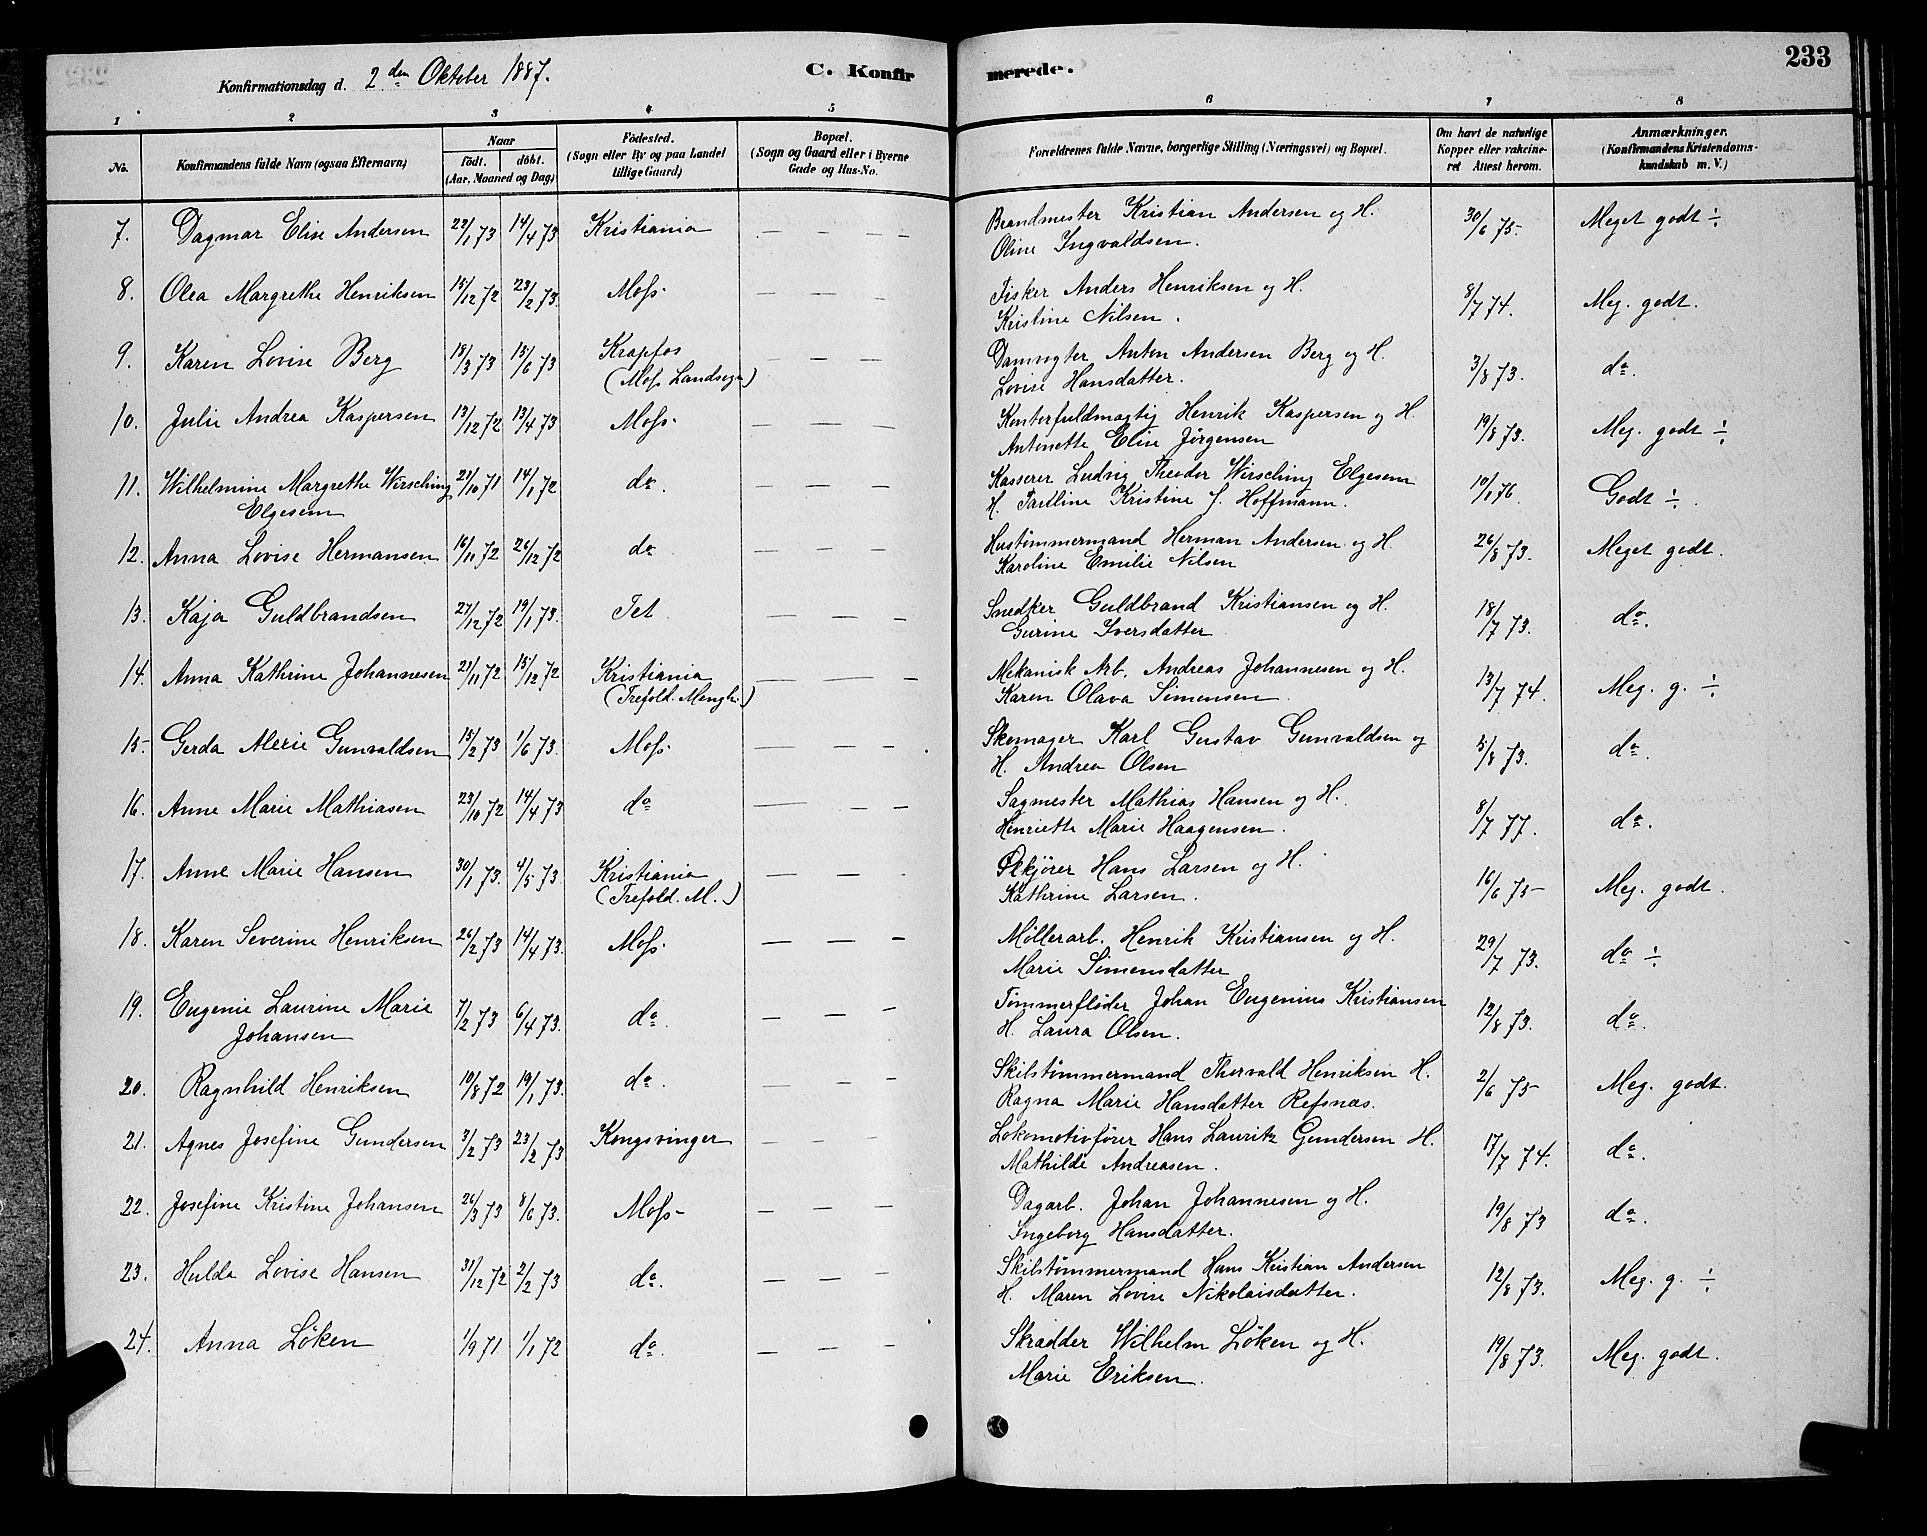 Konfirmationsdag d. 2den Oktober 1887. C. Konfir
merede. 233
1 2 3 4 5 6 7 8
No.
Konfirmandens fulde Navn (ogsaa Efternavn)
Naar
födt. döbt.
(Aar, Maaned og Dag)
Födested.
(Sogn eller By og paa Landet
tillige Gaard)
Bopæl.
(Sogn og Gaard eller i Byerne
Gade og Hus-No.
Forældrenes fulde Navne, borgerlige Stilling (Næringsvei) og Bopæl.
Om havt de naturlige
Kopper eller vakcine-
ret Attest herom.
Anmærkninger.
(Konfirmandens Kristendoms-
kundskab m. V.)
7. Dagmar Elise Andersen 22/1 73 14/4 73 Kristiania — — — — Brandmester Kristian Andersen og H. 30/6 75 Meget godt ÷
Oline Ingvaldsen.
8. Olea Margrethe Henriksen 15/12 72 23/2 73. Moss — — — Fisker Anders Henriksen og H. 8/7 74. Meg. godt.
Kristine Nilsen.
9. Karen Lovise Berg 18/3 73 15/6 73 Krapfos — — — Damvogter Anton Andersen Berg og H. 3/8 73. do.
(Moss Landsogn) Lovise Hansdatter.
10. Julie Andrea Kaspersen 13/12 72 13/4 73 Moss — — — Kontorfuldmægtig Henrik Kaspersen og H. 19/8 73. Meg. godt ÷
Antonette Elise Jörgensen
11. Wilhelmine Margrethe Wirsching 21/10 71 14/1 72 do. — — — Kasserer Ludvig Theodor Wirsching Elgesem 19/1 76. Godt ÷.
Elgesem H. Pauline Kristine f. Hoffmann.
12. Anna Lovise Hermansen 16/11 72 26/12 72 do — — — Hustømmermand Herman Andersen og H. 26/8 73. Meget godt.
Karoline Emilie Nilsen
13. Kaja Guldbrandsen 27/12 72 19/1 73. Tet — — — Snedker Guldbrand Kristiansen og H. 18/7 73. do.
Gurine Iversdatter
14. Anna Kathrine Johannesen 21/11 72 15/12 72 Kristiania — — — Mekanisk Arb. Andreas Johannesen og H. 13/7 74. Meg. g. ÷
(Trefold. Mengh.) Karen Olava Simensen
15. Gerda Alexie Gunvaldsen 15/2 73 1/6 73. Moss — — — Skomager Karl Gustav Gunvaldsen og 5/8 73. do.
H. Andrea Olsen
16. Anne Marie Mathiasen 23/10 72 14/4 73 do — — — Sagmester Mathias Hansen og H. 8/7 77. do.
Henriette Marie Haagensen.
17. Anne Marie Hansen 30/1 73. 4/5 73. Kristiania — — — Ølkjörer Hans Larsen og H. 16/6 75 Meg. godt.
(Trefold. M.) Kathrine Larsen.
18. Karen Severine Henriksen 26/2 73 14/4 73. Moss — — — Møllerarb. Henrik Kristiansen og H. 29/7 73. do ÷
Marie Simensdatter
19. Eugenie Laurine Marie 7/2 73 6/4 73. do. — — — Tømmerfløder Johan Eugenius Kristiansen 12/8 73. do.
Johansen H. Laura Olsen.
20. Ragnhild Henriksen 19/8 72 19/1 73. do. — — — Skibstømmermand Thorvald Henriksen H. 2/6 75 Meg. godt.
Ragna Marie Hansdatter Refsnæs.
21. Agnes Josefine Gundersen 3/2 73 23/2 73 Kongsvinger — — — Lokomotivfører Hans Lauritz Gundersen H. 17/7 74. do.
Mathilde Andreasen.
22. Josefine Kristine Johansen 26/3 73 8/6 73. Moss — — — Dagarb. Johan Johannesen og H. 19/8 73 do.
Ingeborg Hansdatter.
23. Hulda Lovise Hansen 31/12 72 2/2 73 do. — — — Skibstømmermand Hans Kristian Andersen 12/8 73. Meg. g. ÷
H. Maren Lovise Nikolaisdatter.
24. Anna Löken 1/9 71 1/1 72 do. — — — Skrædder Wilhelm Löken og H. 19/8 73. Meg. godt.
Marie Eriksen.